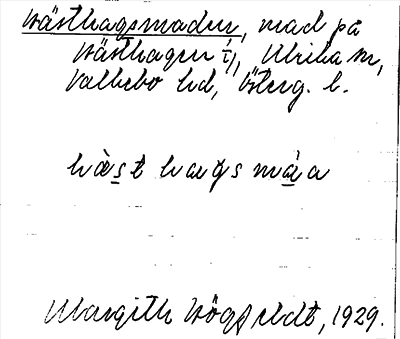 Hästhagsmaden, mad på
Hästhagen ij, Ulrika sn,
Vallebo hd, Öterg. l.
hàs̲t hags mà̲a
Margith Högfeldt, 1929.